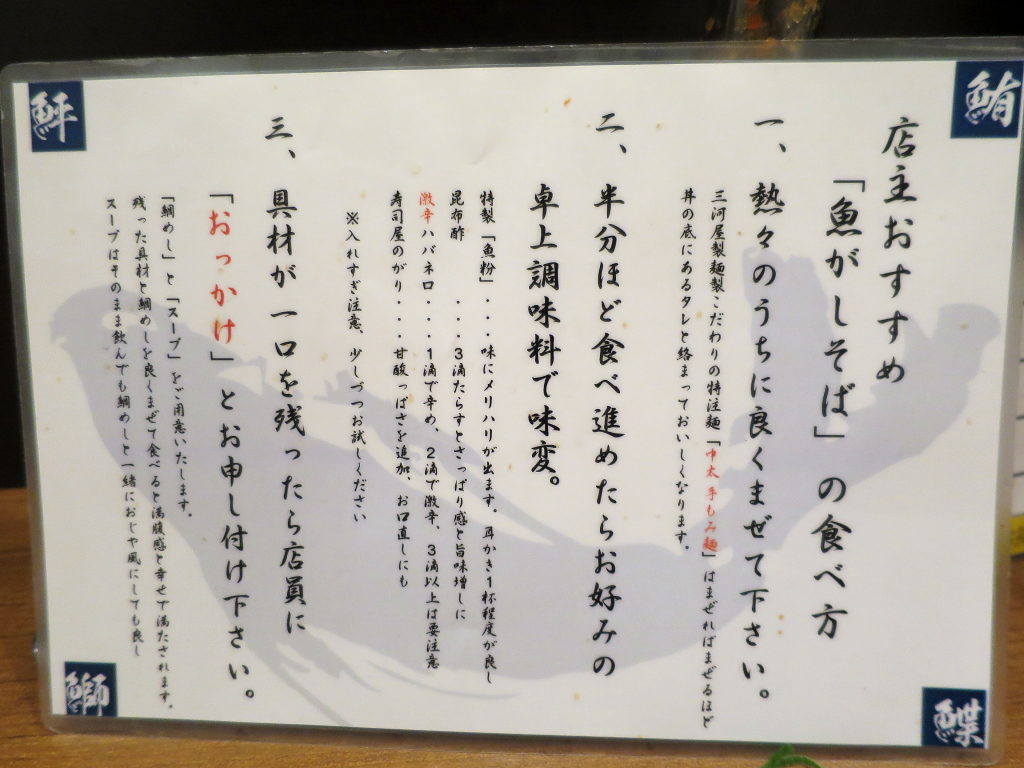 店主おすすめ
「魚がしそば」の食べ方
一、熱々のうちに良くまぜて下さい。
三河屋製麺製こだわりの特注麺「中太手もみ麺」はまぜればまぜるほど
丼の底にあるタレと絡まっておいしくなります。
二、半分ほど食べ進めたらお好みの
卓上調味料で味変。
特製「魚粉」・・・味にメリハリが出ます。耳かき1杯程度が良し
昆布酢・・・3滴たらすとさっぱり感と旨味増しに
激辛ハバネロ・・・1滴で辛め、2滴で激辛、3滴以上は要注意
寿司屋のがり・・・甘酸っぱさを追加、お口直しにも
※入れすぎ注意、少しづつお試しください
三、具材が一口を残ったら店員に
「おっかけ」とお申し付け下さい。
「鯛めし」と「スープ」をご用意いたします。
残った具材と鯛めしを良くまぜて食べると満腹感と幸せで満たされます。
スープはそのまま飲んでも鯛めしと一緒におじや風にしても良し
鮪
鮃
鰤
鰈